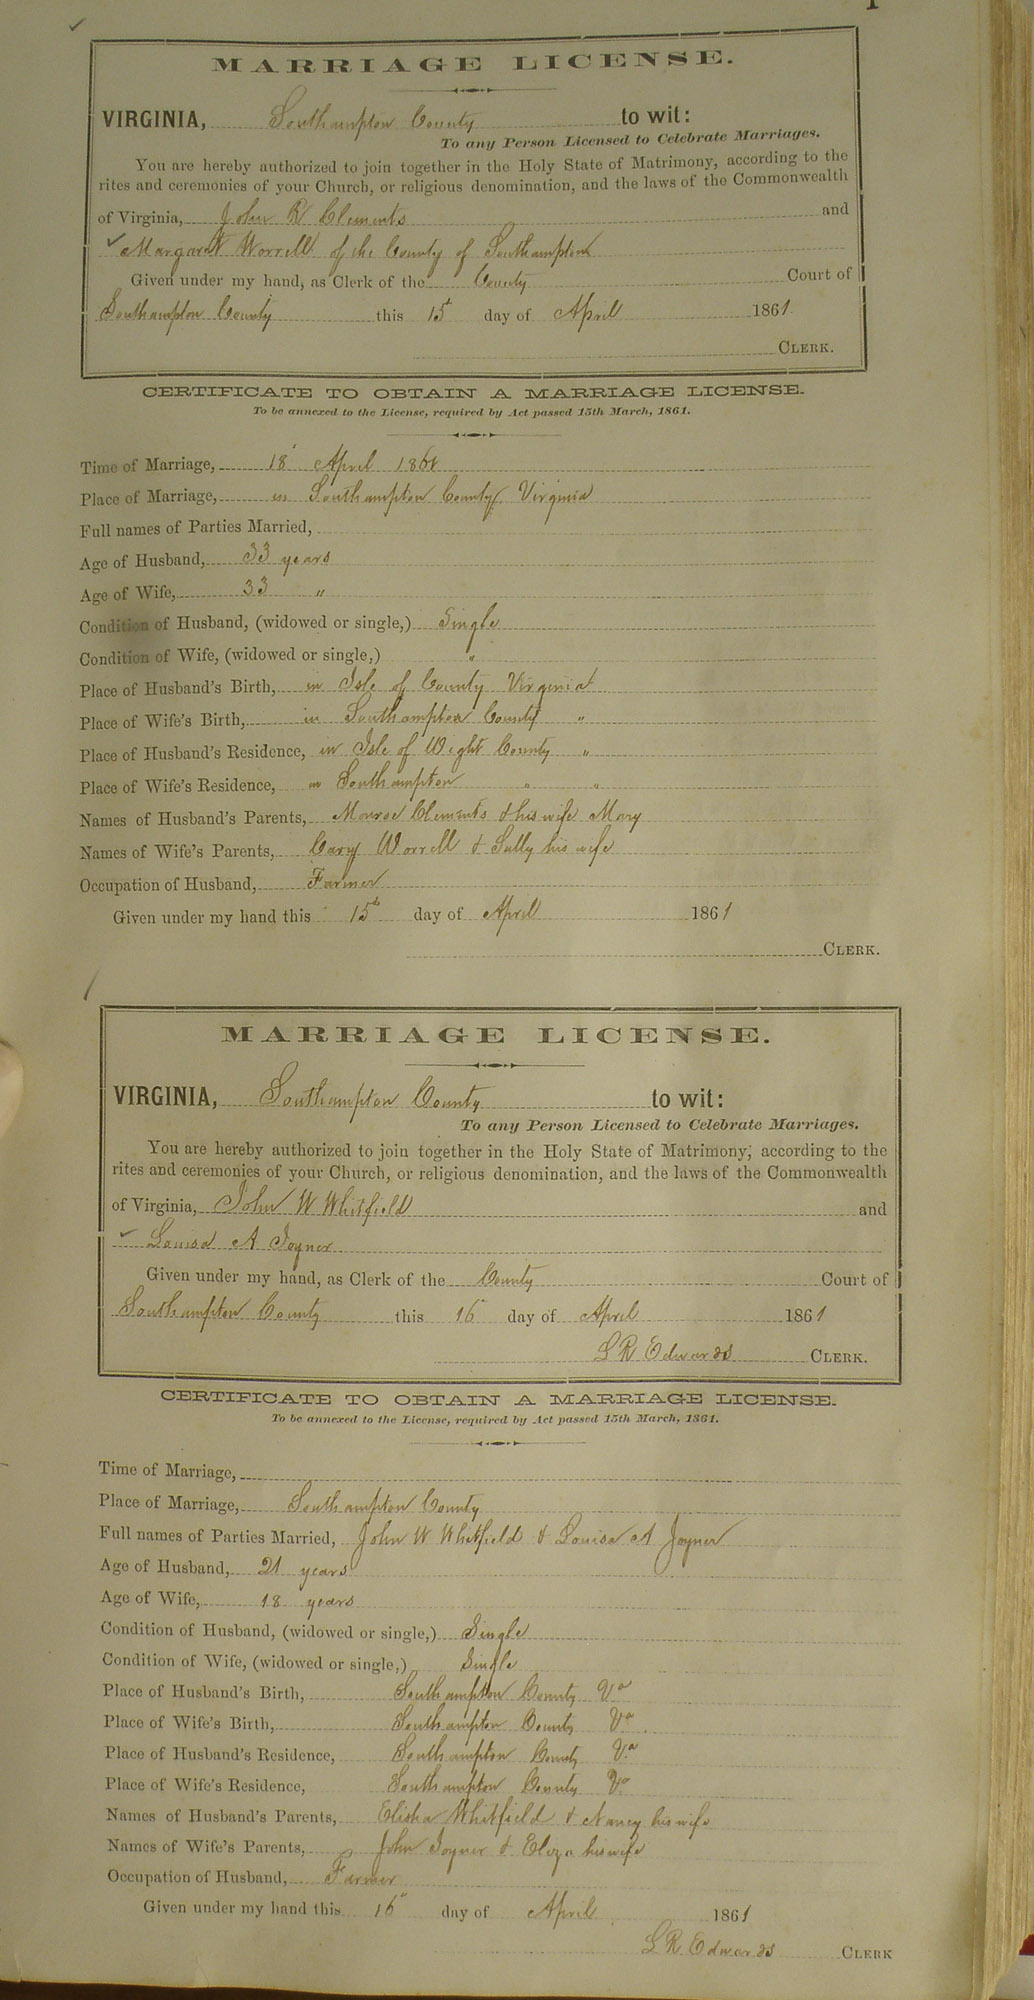 1
MARRIAGE LICENSE.
VIRGINIA, Southampton County to wit:
To any Person Licensed to Celebrate Marriages.
You are hereby authorized to join together in the Holy State of Matrimony, according to the
rites and ceremonies of your Church, or religious denomination, and the laws of the Commonwealth
of Virginia, John R Clements and
Margaret Worrell of the County of Southampton
Given under my hand, as Clerk of the County Court of
Southampton County this 15th day of April 1861.
CLERK.
CERTIFICATE TO OBTAIN A MARRIAGE LICENSE.
To be annexed to the License, required by Act passed 15th March, 1861.
Time of Marriage, 18 April 1861
Place of Marriage, in Southampton County Virginia
Full names of Parties Married,
Age of Husband, 33 years
Age of Wife, 33 "
Condition of Husband, (widowed or single,) Single
Condition of Wife, (widowed or single,) "
Place of Husband's Birth, in Isle of County Virginia
Place of Wife's Birth, in Southampton County "
Place of Husband's Residence, in Isle of Wight County "
Place of Wife's Residence, in Southampton " "
Names of Husband's Parents, Monroe Clements & his wife Mary
Names of Wife's Parents, Cary Worrell & Sally his wife
Occupation of Husband, Farmer
Given under my hand this 15th day of April 1861
CLERK.
MARRIAGE LICENSE.
VIRGINIA, Southampton County to wit:
To any Person Licensed to Celebrate Marriages.
You are hereby authorized to join together in the Holy State of Matrimony, according to the
rites and ceremonies of your Church, or religious denomination, and the laws of the Commonwealth
of Virginia, John W Whitfield and
Louisa A Joyner
Given under my hand, as Clerk of the County Court of
Southampton County this 16 day of April 1861
L R Edwards CLERK.
CERTIFICATE TO OBTAIN A MARRIAGE LICENSE.
To be annexed to the License, required by Act passed 15th March, 1861.
Time of Marriage,
Place of Marriage, Southampton County
Full names of Parties Married, John W Whitfield & Louisa A Joyner
Age of Husband, 21 years
Age of Wife, 18 years
Condition of Husband, (widowed or single,) Single
Condition of Wife, (widowed or single,) Single
Place of Husband's Birth, Southampton County Va
Place of Wife's Birth, Southampton County Va
Place of Husband's Residence, Southampton County Va
Place of Wife's Residence, Southampton County Va
Names of Husband's Parents, Elisha Whitfield & Nancy his wife
Names of Wife's Parents, John Joyner & Eliza his wife
Occupation of Husband, Farmer
Given under my hand this 16 day of April 1861
L R Edwards CLERK